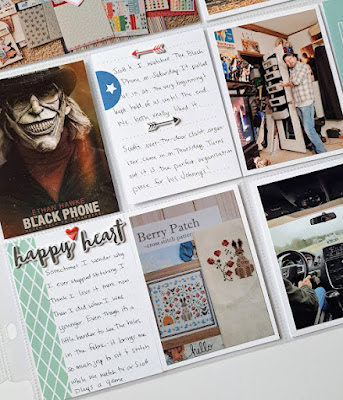 ETHAN HAWKE
BLACK PHONE
Scott & I watched The Black
Phone on Saturday. It pulled
us in at the very beginning &
kept hold of us until the end.
We both really liked it.
Scott's over-the-door closet organ-
izer came in on Thursday. Turns
out it is the perfect organization
piece for his
happy heart
Sometimes I wonder why
I ever stopped stitching. I
think I love it more now
than I did when I was
younger. Even though it's a
little harder to see the holes
in the fabric - it brings me
so much joy to sit & stitch
while we watch tv or Scott
plays a game.
Berry Patch
cross stitch pattern
hello